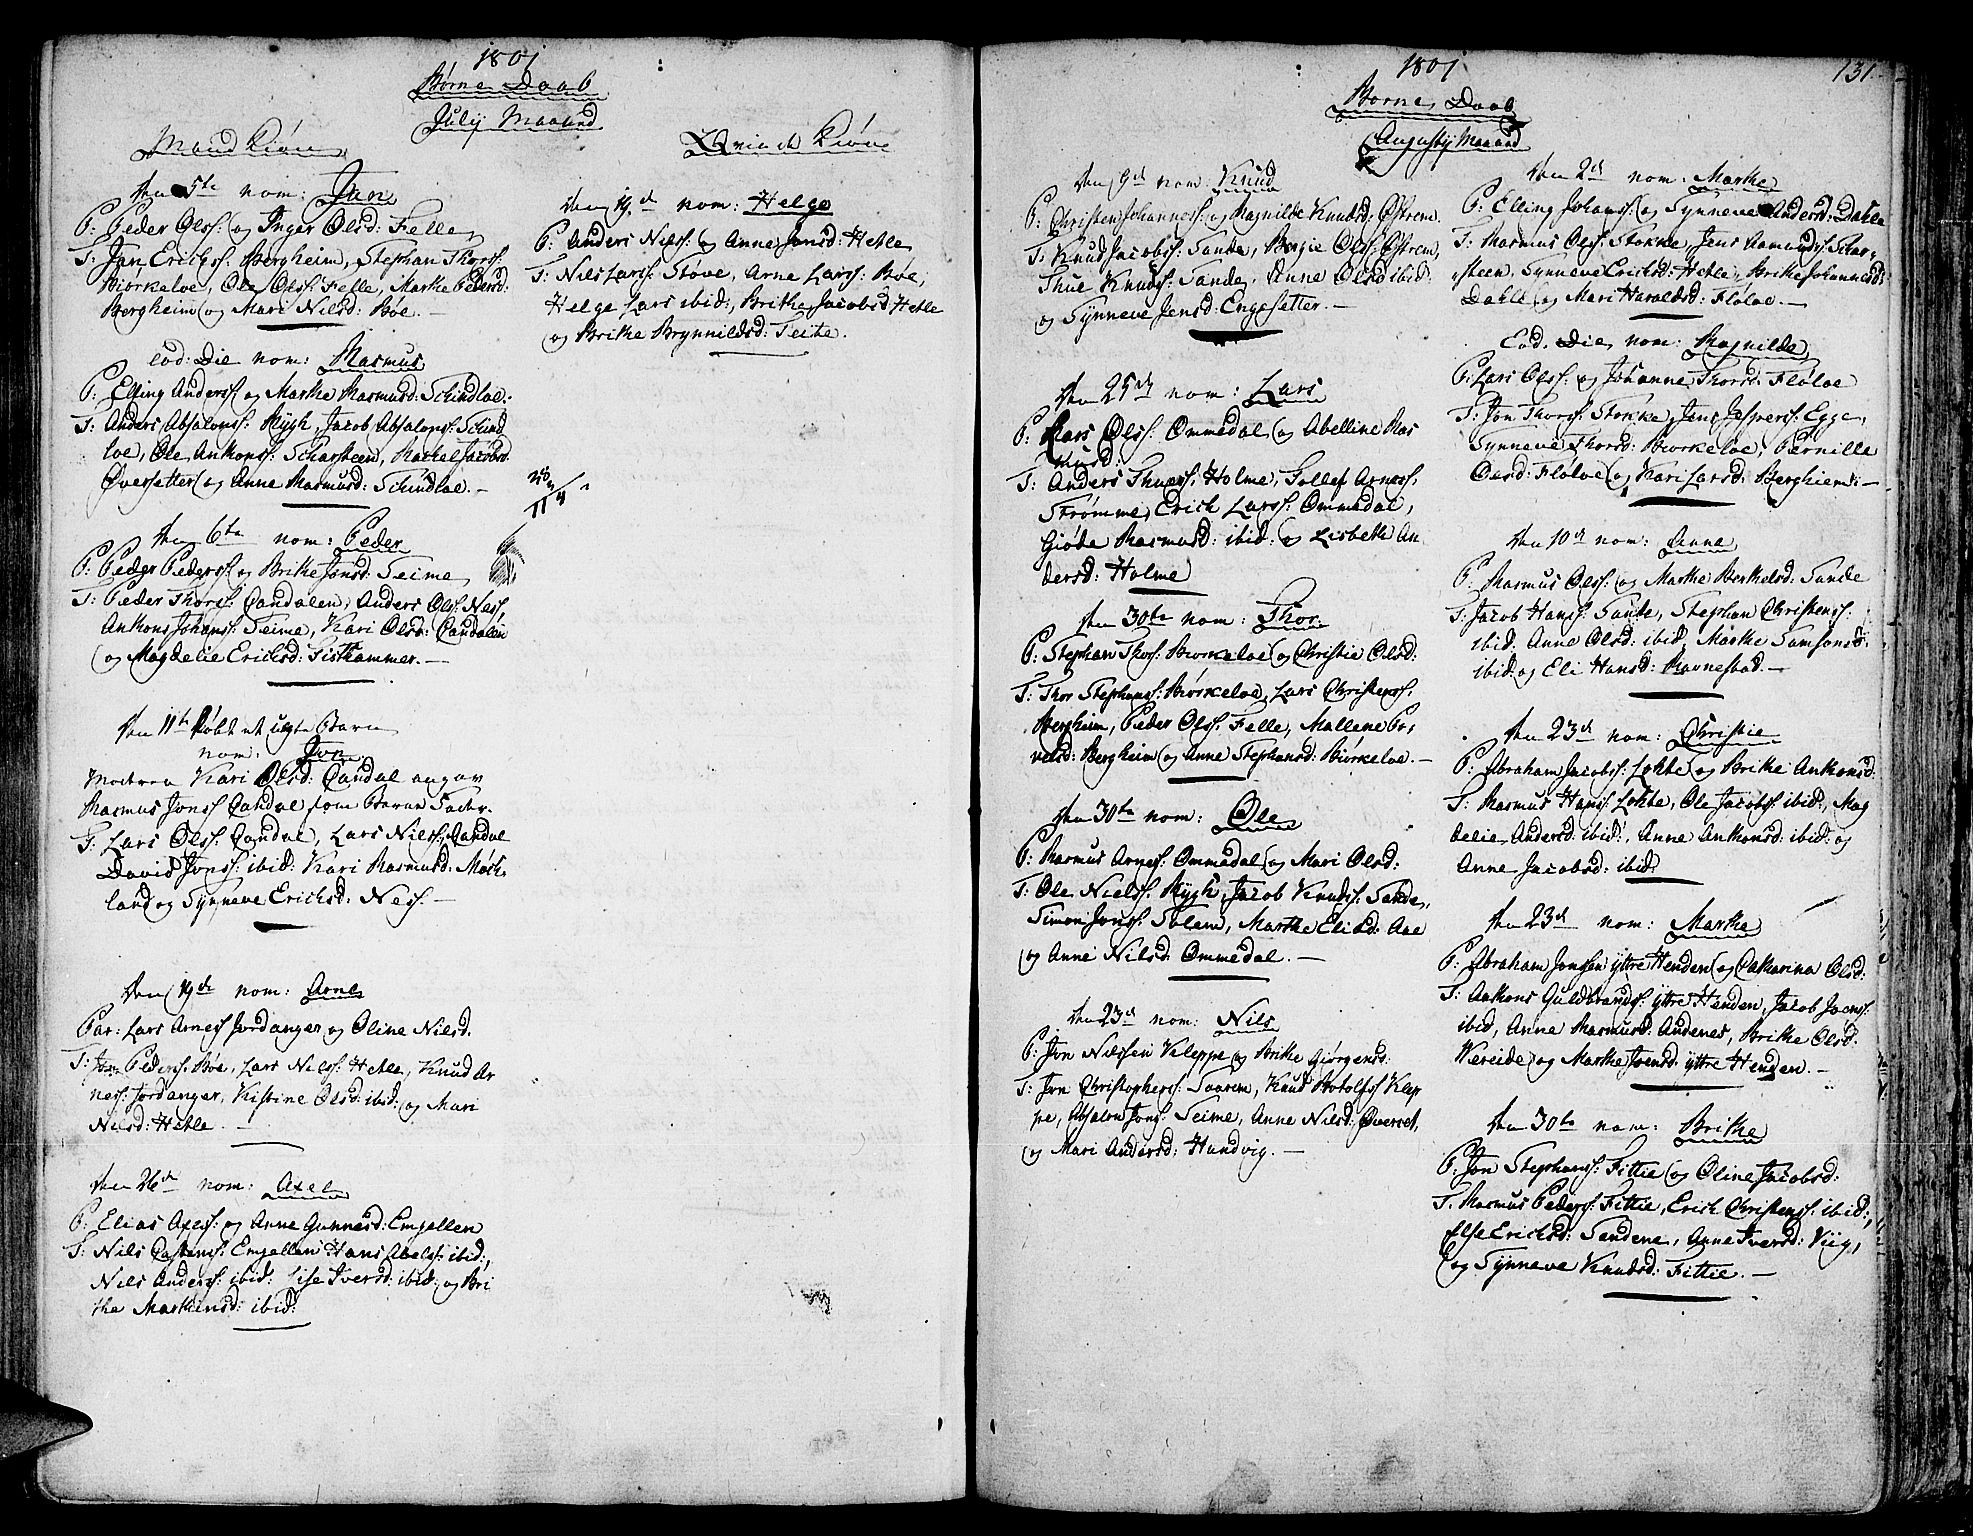 1801
Børne Daab
July Maaned
Mand Kiøn
den 5te nom: Jan
P: Peder Ols: og Inger Olsd: Felle
T: Jan Erichs: Bergheim, Stephan Thors:
Biørkeloe, Ole Ols: Felle, Marthe Pedersd:
Bergheim og Mari Nilsd: Bøe. —
eod: Die nom: Rasmus
P: Elling Anders: og Marthe Rasmusd: Schindloe:
T: Anders Absalons: Rygh, Jacob Absalons: Schind
loe, Ole Anthons: Scharsteen, Rachel Jacobsd:
Øvresetter og Anne Rasmusd: Schindloe. —
den 6te nom: Peder
P: Peder Peders: og Brithe Jonsd: Seime
T: Peder Thors: Candalen, Anders Ols: Nes,
Anthons Johans: Seime, Kari Olsd: Candalen
og Magdelie Erichsd: Gisthammer. —
den 11te døbt et uægte Barn
nom: Jon
Moderen Kari Olsd: Candal angav
Rasmus Jons: Candal som Barne Fader.
T: Lars Ols: Candal, Lars Nils: Candal
David Jons: ibid: Kari Rasmusd: Moch
land og Synneve Erichsd: Nes. —
den 19de nom: Arne
Par: Lars Arnes: Jordanger og Oline Nilsd.
T: Jon Peders: Bøe, Lars Nils: Hetle, Knud Ar
nes: Jordanger, Kistine Olsd: ibid: og Mari
Nilsd: Hetle —
den 26de nom: Axel
P: Elias Axels: og Anne Gunnesd: Emhellen
T: Nils Castens: Emhellen Hans Abels: ibid:,
Nils Anders: ibid: Lise Iversd: ibid: og Bri
the Marthinsd: ibid:
Qvinde Kiøn
den 19de nom: Helge
P: Anders Nils: og Anne Jonsd: Hetle
T: Nils Lars: Stove, Arne Lars: Bøe,
Helge Lars ibid:, Brithe Jacobsd: Hetle
og Brithe Brynnildsd: Seite.
1801
131.
Børne Daab
Augustij Maaned
den 9de nom: Knud
P: Christen Johannes: og Ragnilde Knudsd: Østrem.
T: Knud Jacobs: Sande, Børgie Ols: Østrem,
Thue Knuds: Sande, Anne Olsd: ibid:
og Synneve Jensd: Engesetter. —
den 25de nom: Lars
P: Lars Ols: Ommedal og Abelline Ras
musd:
T: Anders Thues: Holme, Gollef Arnes:
Strømme, Erich Lars: Ommedal,
Giøde Rasmusd: ibid: og Lisbeth An
dersd: Holme
den 30te nom: Thor
P: Stephan Thors: Biørkeloe og Christie Olsd:
T: Thor Stephans: Biørkeloe, Lars Christens:
Bergheim, Peder Ols: Felle, Mallene Po,
velsd: Bergheim og Anne Stephansd: Biørkeloe. —
den 30te nom: Ole
P: Rasmus Arnes: Ommedal og Mari Olsd:
T: Ole Niels: Rygh, Jacob Knuds: Sande,
Simon Jons: Solem, Marthe Eliasd: Aae
og Anne Nilsd: Ommedal. —
den 23de nom: Nils
P: Jon Nilssen Kleppe og Brithe Giørgensd:
T: Jon Christophers: Taarem, Knud Botolfs: Klep
pe, Absalon Jons: Seime, Anne Nilsd: Øverset,
og Mari Andersd: Hundvig. —
den 2de nom: Marthe
P: Elling Johans: og Synneve Andersd: Dahle
T: Rasmus Ols: Stokke, Jens Aamunds: Schar,
steen, Synneve Erichsd: Hetle, Brithe Johannesd:
Dahle og Mari Haraldsd: Fløloe. —
Eod. Die nom: Ragnilde
P: Lars Ols: og Johanne Thorsd: Fløloe
T: Jon Thors: Stokke, Jens Jespers: Egge,
Synneve Thorsd: Biorkeloe, Pernille
Olsd: Fløloe og Kari Larsd: Berghiem: —
den 10de nom: Anne
P: Rasmus Ols: og Marthe Berthelsd: Sande
T: Jacob Hans: Sande, Stephan Christens:
ibid: Anne Olsd: ibid, Marthe Samsonsd:
ibid: og Eli Hansd: Ravnestad. —
den 23de nom: Christie
P: Abraham Jacobs: Lothe og Brithe Anthonsd:
T: Rasmus Hans: Lothe, Ole Jacobs: ibid:, Mag
delie Andersd: ibid:, Anne Anthonsd: ibid: og
Anne Jacobsd: ibid
den 23de nom: Marthe
P: Abraham Jonsen yttre Henden og Catharina Olsd:
T: Anthons Guldbrands: yttre Henden, Jacob Joens:
ibid, Anne Rasmusd: Andenes, Brithe Olsd:
Wereide og Marthe Joensd: yttre Henden. —
den 30te nom: Brithe
P: Jon Stephans: Fittie og Oline Jacobsd:
T: Rasmus Peders: Fittie, Erich Christens: ibid:,
Else Erichsd: Sandene, Anne Iversd: Viig,
og Synneve Knudsd: Fittie. —